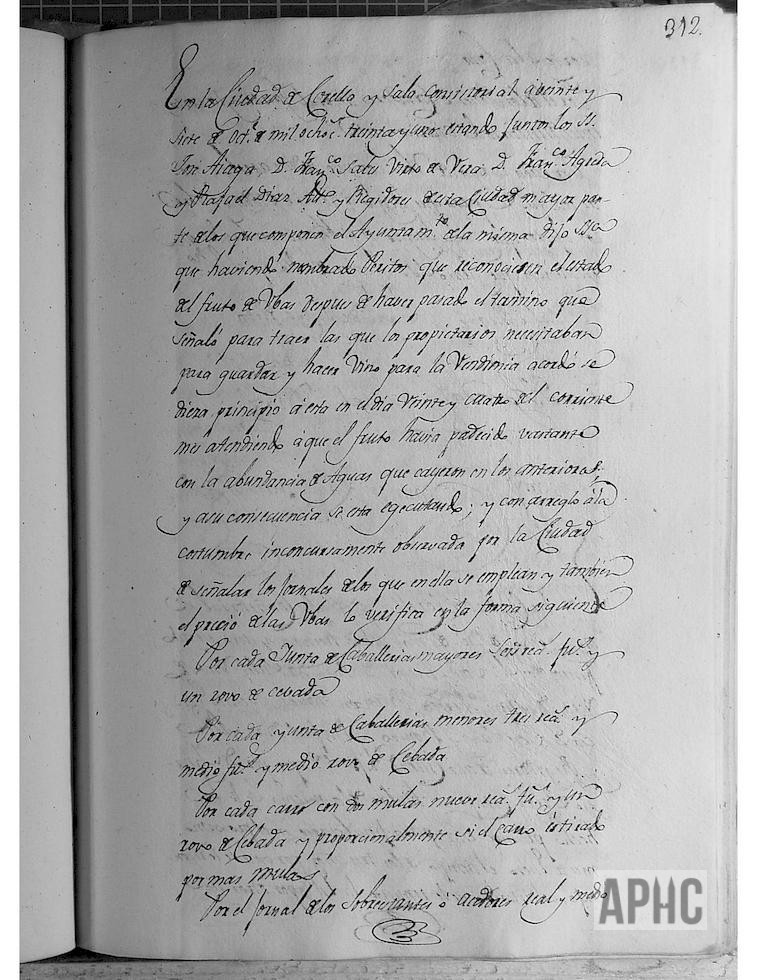 312.
En la Ciudad de Corella y Sala Consistorial a veinte y
siete de Oct.e de mil ochoc.s treinta y uno estando Juntos los SS.
José Aiaga D. Fran.co Sales Virto de Vera D. Fran.co Agreda
y Rafael Diaz Alc.e y Regidores de esta Ciudad mayor par-
te de los que componen el Ayuntam.to de la misma dijo SSa
que haviendo nombrado Peritos que reconociesen el estado
del fruto de Ubas despues de haver pasado el termino que
señaló para traer las que los propietarios necesitaban
para guardar y hacer Vino para la Vendimia acordó se
diera principio á esta en el dia Veinte y cuatro del corriente
mes atendiendo á que el fruto havia padecido vastante
con la abundancia de Aguas que cayeron en los anteriores
y a su consecuencia se esta egecutando; y con arreglo á la
costumbre inconcusamente observada por la Ciudad
de señalar los Jornales de los que en ella se emplean y tambien
el precio de las Ubas lo verifica en la forma siguiente
Por cada Junta de Caballerias mayores seis rea.s fu.s y
un rovo de cebada
Por cada yunta de Caballerias menores tres rea.s y
medio fu.s y medio rovo de Cebada
Por cada carro con dos mulas nueve rea.s fu.s y un
rovo de Cebada y proporcionalmente si el Carro es tirado
por mas mulas
Por el Jornal de los Sobrestantes ó acedores real y medio
APHC